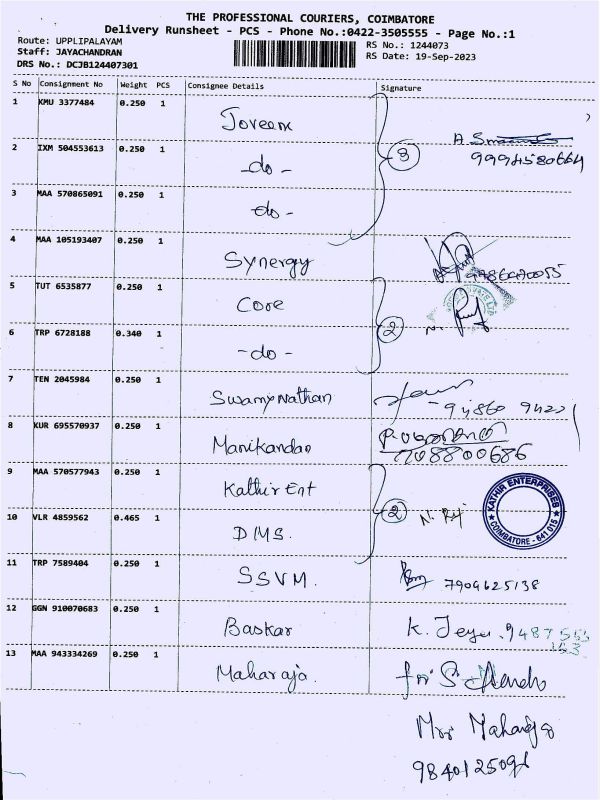 THE PROFESSIONAL COURIERS, COIMBATORE
Delivery Runsheet - PCS - Phone No.:0422-3505555 - Page No.:1
Route: UPPLIPALAYAM
Staff: JAYACHANDRAN
DRS No.: DCJB124407301
RS No.: 1244073
RS Date: 19-Sep-2023
S No Consignment No Weight PCS Consignee Details Signature
1 KMU 3377484 0.250 1 Joveem
3
A
9994580664
2 IXM 504553613 0.250 1 -do-
3 MAA 570865091 0.250 1 do-
4 MAA 105193407 0.250 1 Synergy
5 TUT 6535877 0.250 1 Core
2
6 TRP 6728188 0.340 1 -do-
7 TEN 2045984 0.250 1 Swamynathan
8 KUR 695570937 0.250 1 Manikandan
708800686
9 MAA 570577943 0.250 1 Kathir Ent
2
KATHIR ENTERPRISES
COIMBATORE - 641 015
10 VLR 4859562 0.465 1 DIMS.
11 TRP 7589404 0.250 1 SSVM.
7904625138
12 GGN 910070683 0.250 1 Baskar
K. Jeya. 9487553
153
13 MAA 943334269 0.250 1 Maharaja.
for S
Mrr Maharaja